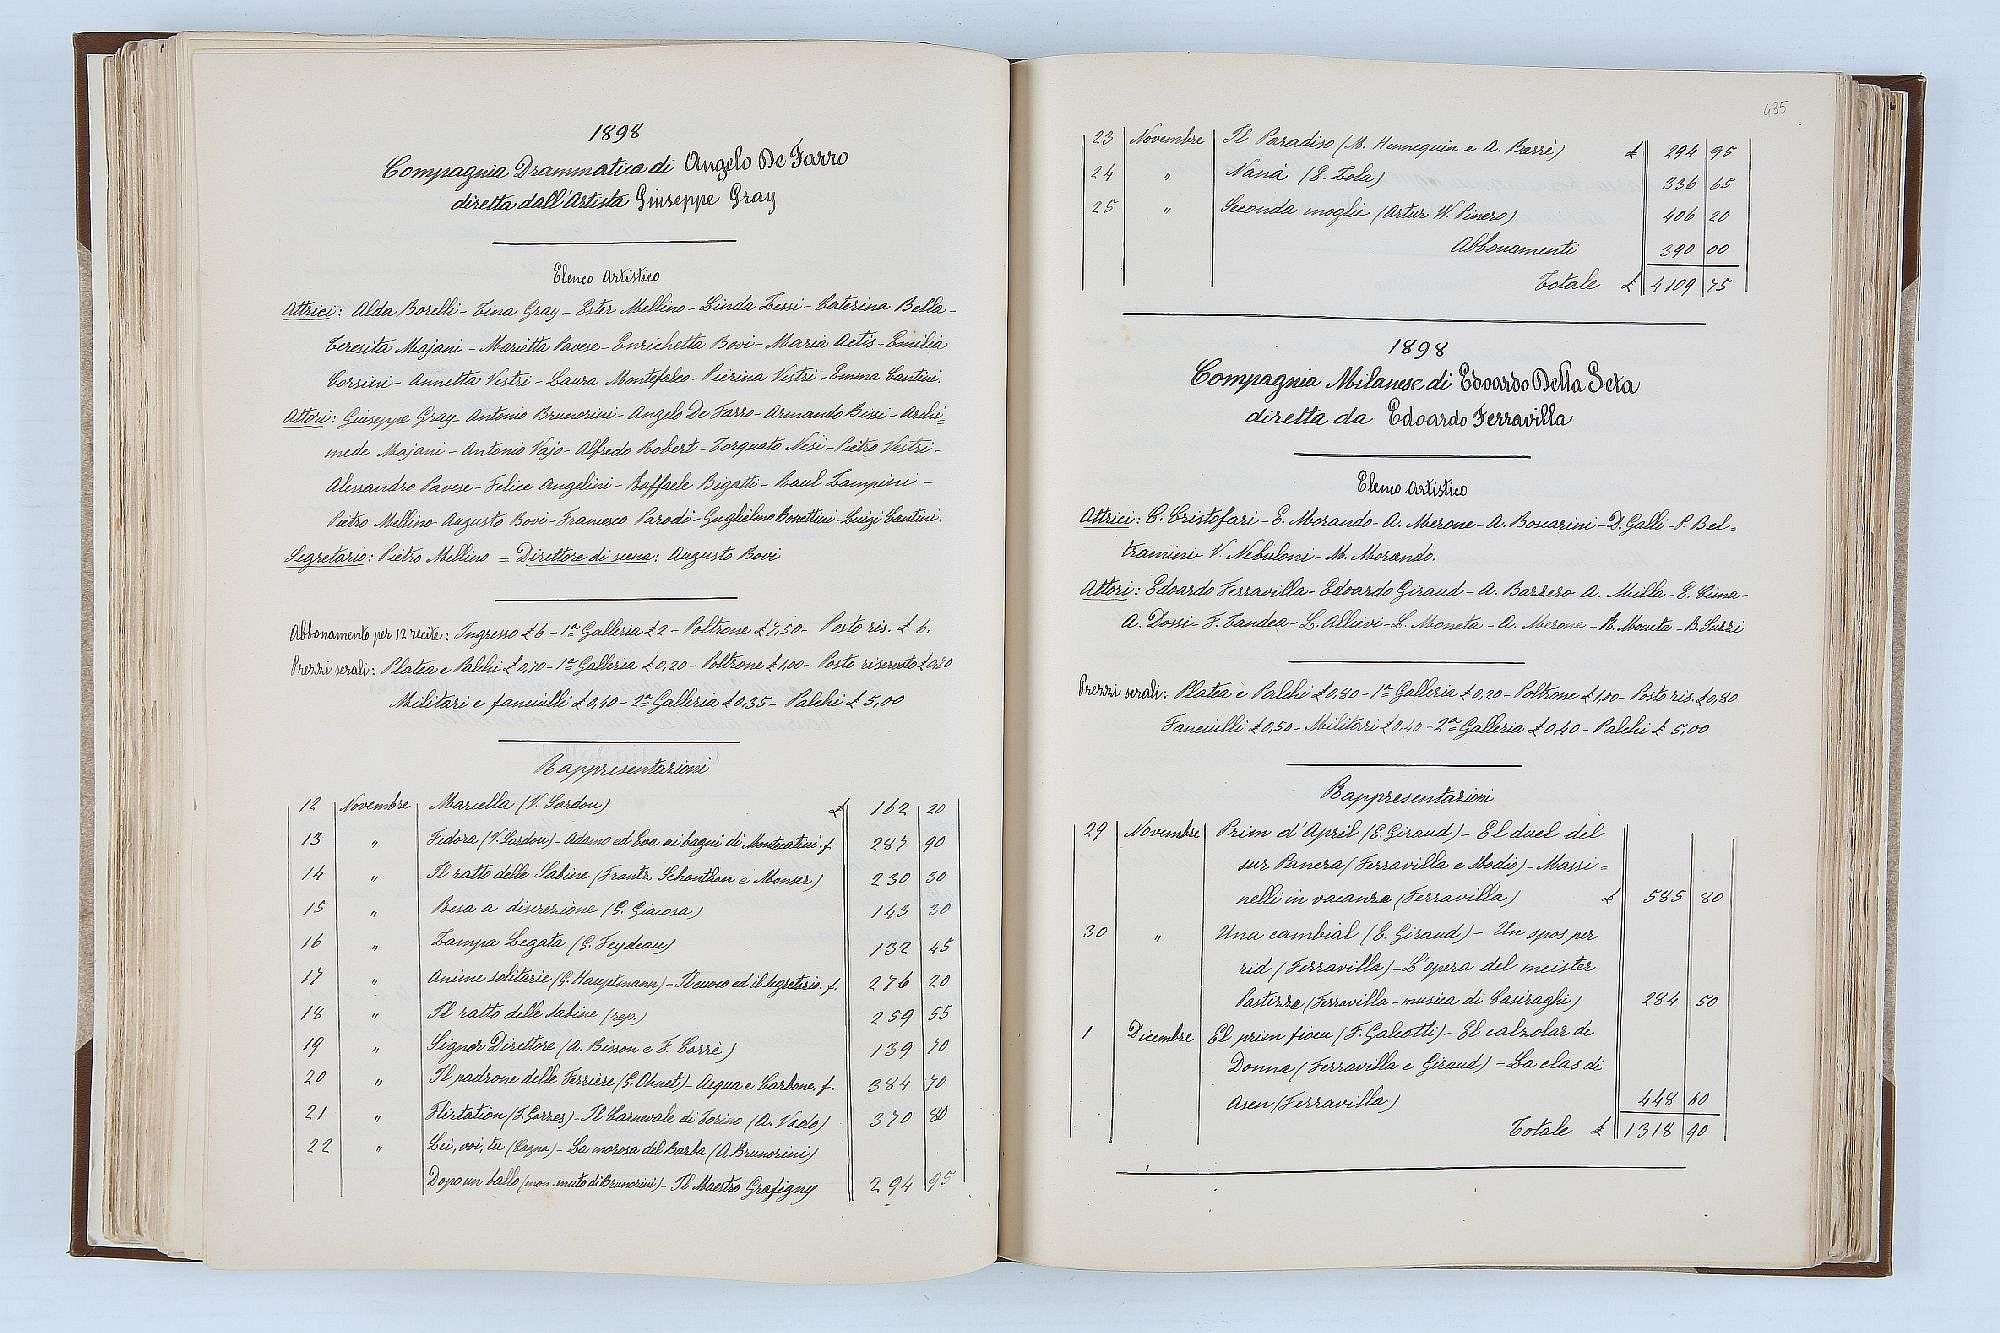 1898
Compagnia Drammatica di Angelo De Farro
diretta dall'Artista Giuseppe Gray
Elenco Artistico
Attrici: Alda Borelli - Tina Gray - Ester Mellino - Linda Zessi - Caterina Bella -
Teresita Majani - Marietta Pavese - Enrichetta Bovi - Maria Actis - Emilia
Corsini - Annetta Vestri - Laura Montefalco - Pierina Vestri - Emma Cantini.
Attori: Giuseppe Gray - Antonio Brunorini - Angelo De Farro - Armando Bissi - Archi=
mede Majani - Antonio Vajo - Alfredo Robert - Torquato Nesi - Pietro Vestri -
Alessandro Pavese - Felice Angelini - Raffaele Bigatti - Raul Zampini -
Pietro Mellino Augusto Bovi - Francesco Parodi - Guglielmo Bonettini - Luigi Cantini.
Segretario: Pietro Mellino = Direttore di scena: Augusto Bovi
Abbonamento per 12 recite: Ingresso £ 6 - 1ª Galleria £ 2 - Poltrone £ 7,50 - Posto ris. £ 6.
Prezzi serali: Platea e Palchi £ 0,70 - 1ª Galleria £ 0,20 - Poltrone £ 1,00 - Posto riservato £
Militari e fanciulli £ 0,40 - 2ª Galleria £ 0,35 - Palchi £ 5,00
Rappresentazioni
12 Novembre Marcella (V. Sardou) £ 162 20
13 " Fedora (V. Sardou) - Adamo ed Eva ai bagni di Montecatini. f. 287 90
14 " Il ratto delle Sabine (Frantz Schonthan e Monser) 230 30
15 " Resa a discrezione (G. Giacosa) 143 30
16 " Zampa Legata (G. Feydeau) 132 45
17 " Anime solitarie (G. Hauptmann) - Il cuoco ed il segretario. f. 276 20
18 " Il ratto delle Sabine (rep.) 259 55
19 " Signor Direttore (A. Bisson e F. Carrè) 139 70
20 " Il padrone delle Ferriere (G. Ohnet) - Acqua e Carbone. f. 384 70
21 " Flirtation (F. Garzes) - Il Carnevale di Torino (A. Vado) 370 80
22 " Lei, voi, tu (Cagna) - La morosa del Barba (A. Brunorini)
Dopo un ballo (mon. muto di Brunorini) - Il Maestro Grafigny 294 95
435
23 Novembre Il Paradiso (M. Hennequin e A. Barrè) £ 294 95
24 " Nanà (E. Zola) 336 65
25 " Seconda moglie (Artur W. Pinero) 406 20
Abbonamenti 390 00
Totale £ 4109 75
1898
Compagnia Milanese di Edoardo Della Seta
diretta da Edoardo Ferravilla
Elenco Artistico
Attrici: C. Cristofari - E. Morando - A. Merone - A. Boscarini - D. Galli - P. Bel=
tramini V. Nebuloni - M. Morando.
Attori: Edoardo Ferravilla - Edoardo Giraud - A. Barrera A. Milla - E. Cima -
A. Dossi - F. Landea - L. Allievi - L. Moneta - A. Merone - R. Moneta - B.
Prezzi serali: Platea e Palchi £ 0,80 - 1ª Galleria £ 0,20 - Poltrone £ 1,00 - Posto ris. £ 0,80
Fanciulli £ 0,50 - Militari £ 0,40 - 2ª Galleria £ 0,40 - Palchi £ 5,00
Rappresentazioni
29 Novembre Prim d'April (E. Giraud) - El duel del
sur Panera (Ferravilla e Modio) - Massi=
nelli in vacanza (Ferravilla) £ 585 80
30 " Una cambial (E. Giraud) - Un spos per
rid (Ferravilla) - L'opera del meister
Pastizza (Ferravilla - musica di Casiraghi) 284 50
1 Dicembre El prim fioeu (F. Galeotti) - El calzolar de
Donna (Ferravilla e Giraud) - La clas di
Asen (Ferravilla) 448 60
Totale £ 1318 90